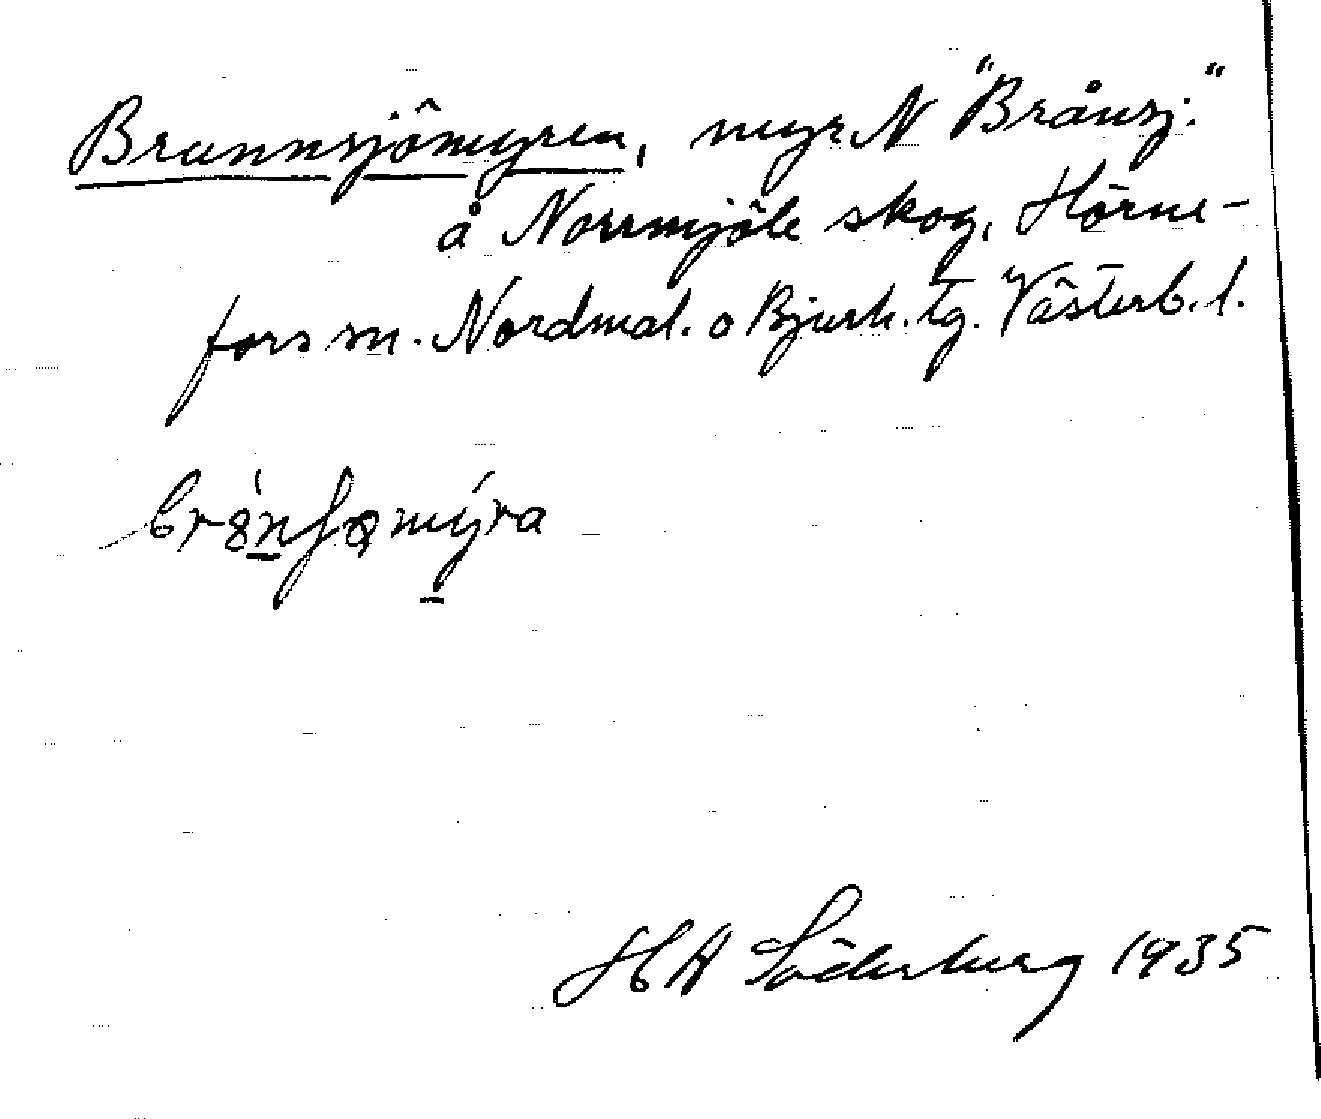 Brunnsjömyren, myr N "Brånsj."
å Norrmjöle skog, Hörne-
fors sn. Nordmal. o Bjurh. tg. Västerb. l.
H A Söderberg 1935